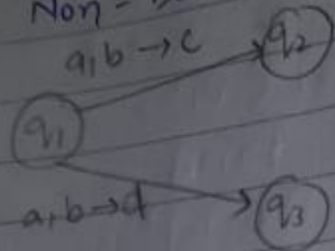 Non -
a,b → c
q2
q1
a,b → d
q3